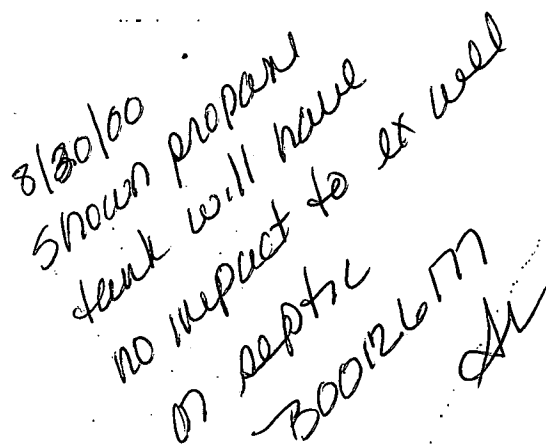 8/30/00
Shown propane
tank will have
no impact to ex well
or septic
B00126177